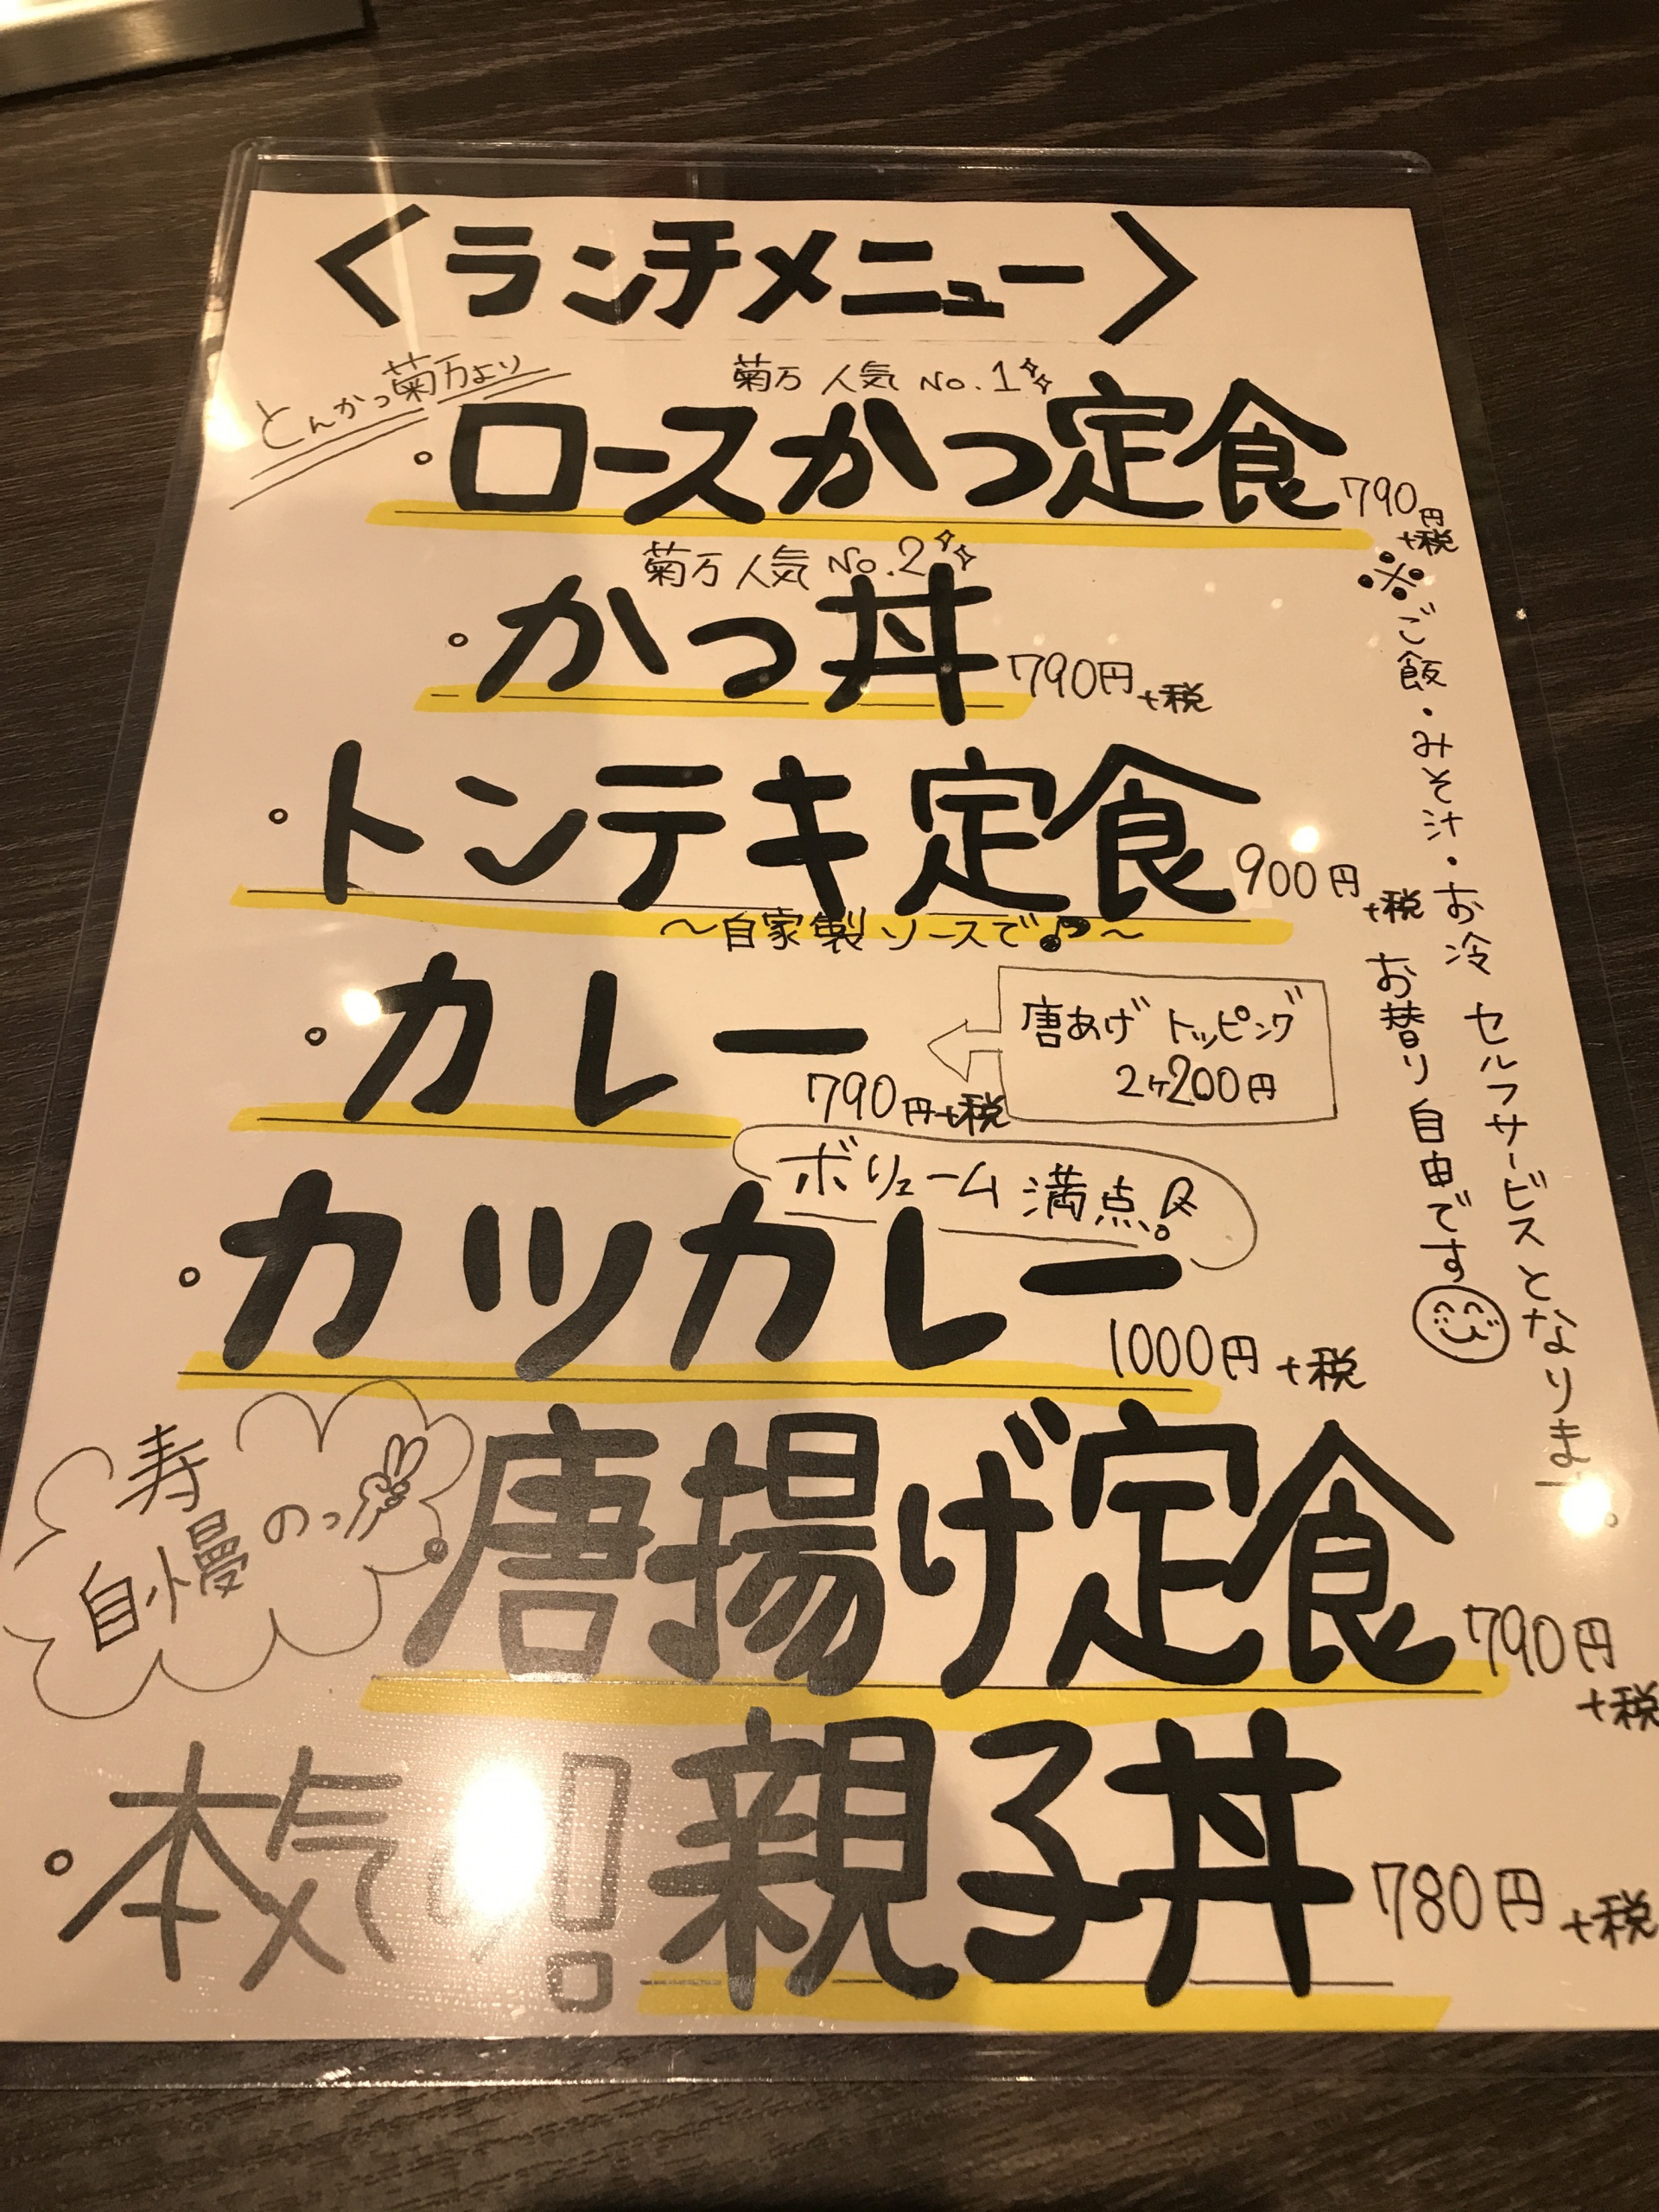 〈ランチメニュー〉
とんかつ菊万より
菊万 人気 No.1
・ロースかつ定食 790円+税
菊万 人気 No.2
・かつ丼 790円+税
・トンテキ定食 900円+税
～自家製ソースで♪～
・カレー 790円+税
唐あげ トッピング
2ヶ200円
ボリューム 満点!
・カツカレー 1000円+税
寿
自慢のっ
・唐揚げ定食 790円+税
・本気 ! 親子丼 780円+税
※ご飯・みそ汁・お冷 セルフサービスとなります。
お替り自由です